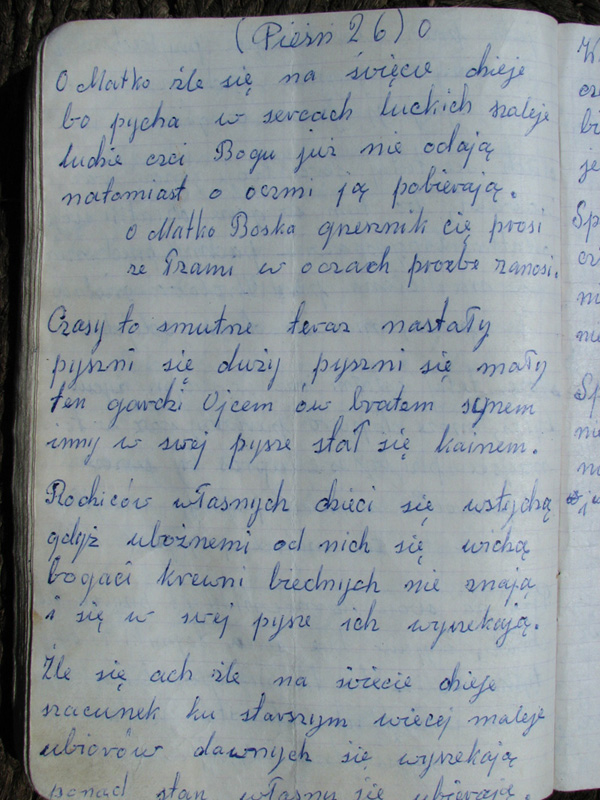 (Pieśń 26) O
O Matko źle się na świecie dzieje
bo pycha w sercach luckich szaleje
ludzie czci Bogu już nie odają
natomiast o oczmi ją pobierają.
O Matko Boska grzesznik cię prosi
ze łzami w oczach prozbe zanosi.
Czasy to smutne teraz nastały
pyszni się duży pyszni się mały
ten gardzi Ojcem ów bratem synem
inny w swej pysze stał się kainem.
Rodziców własnych dzieci się wstydzą
gdyż ubożnemi od nich się widzą
bogaci krewni biednych nie znają
i się w swej pysze ich wyrzekają.
Źle się ach źle na świecie dzieje
szacunek ku starszym wiecej maleje
ubiorów dawnych się wyrzekają
ponad stan własny się ubierają.